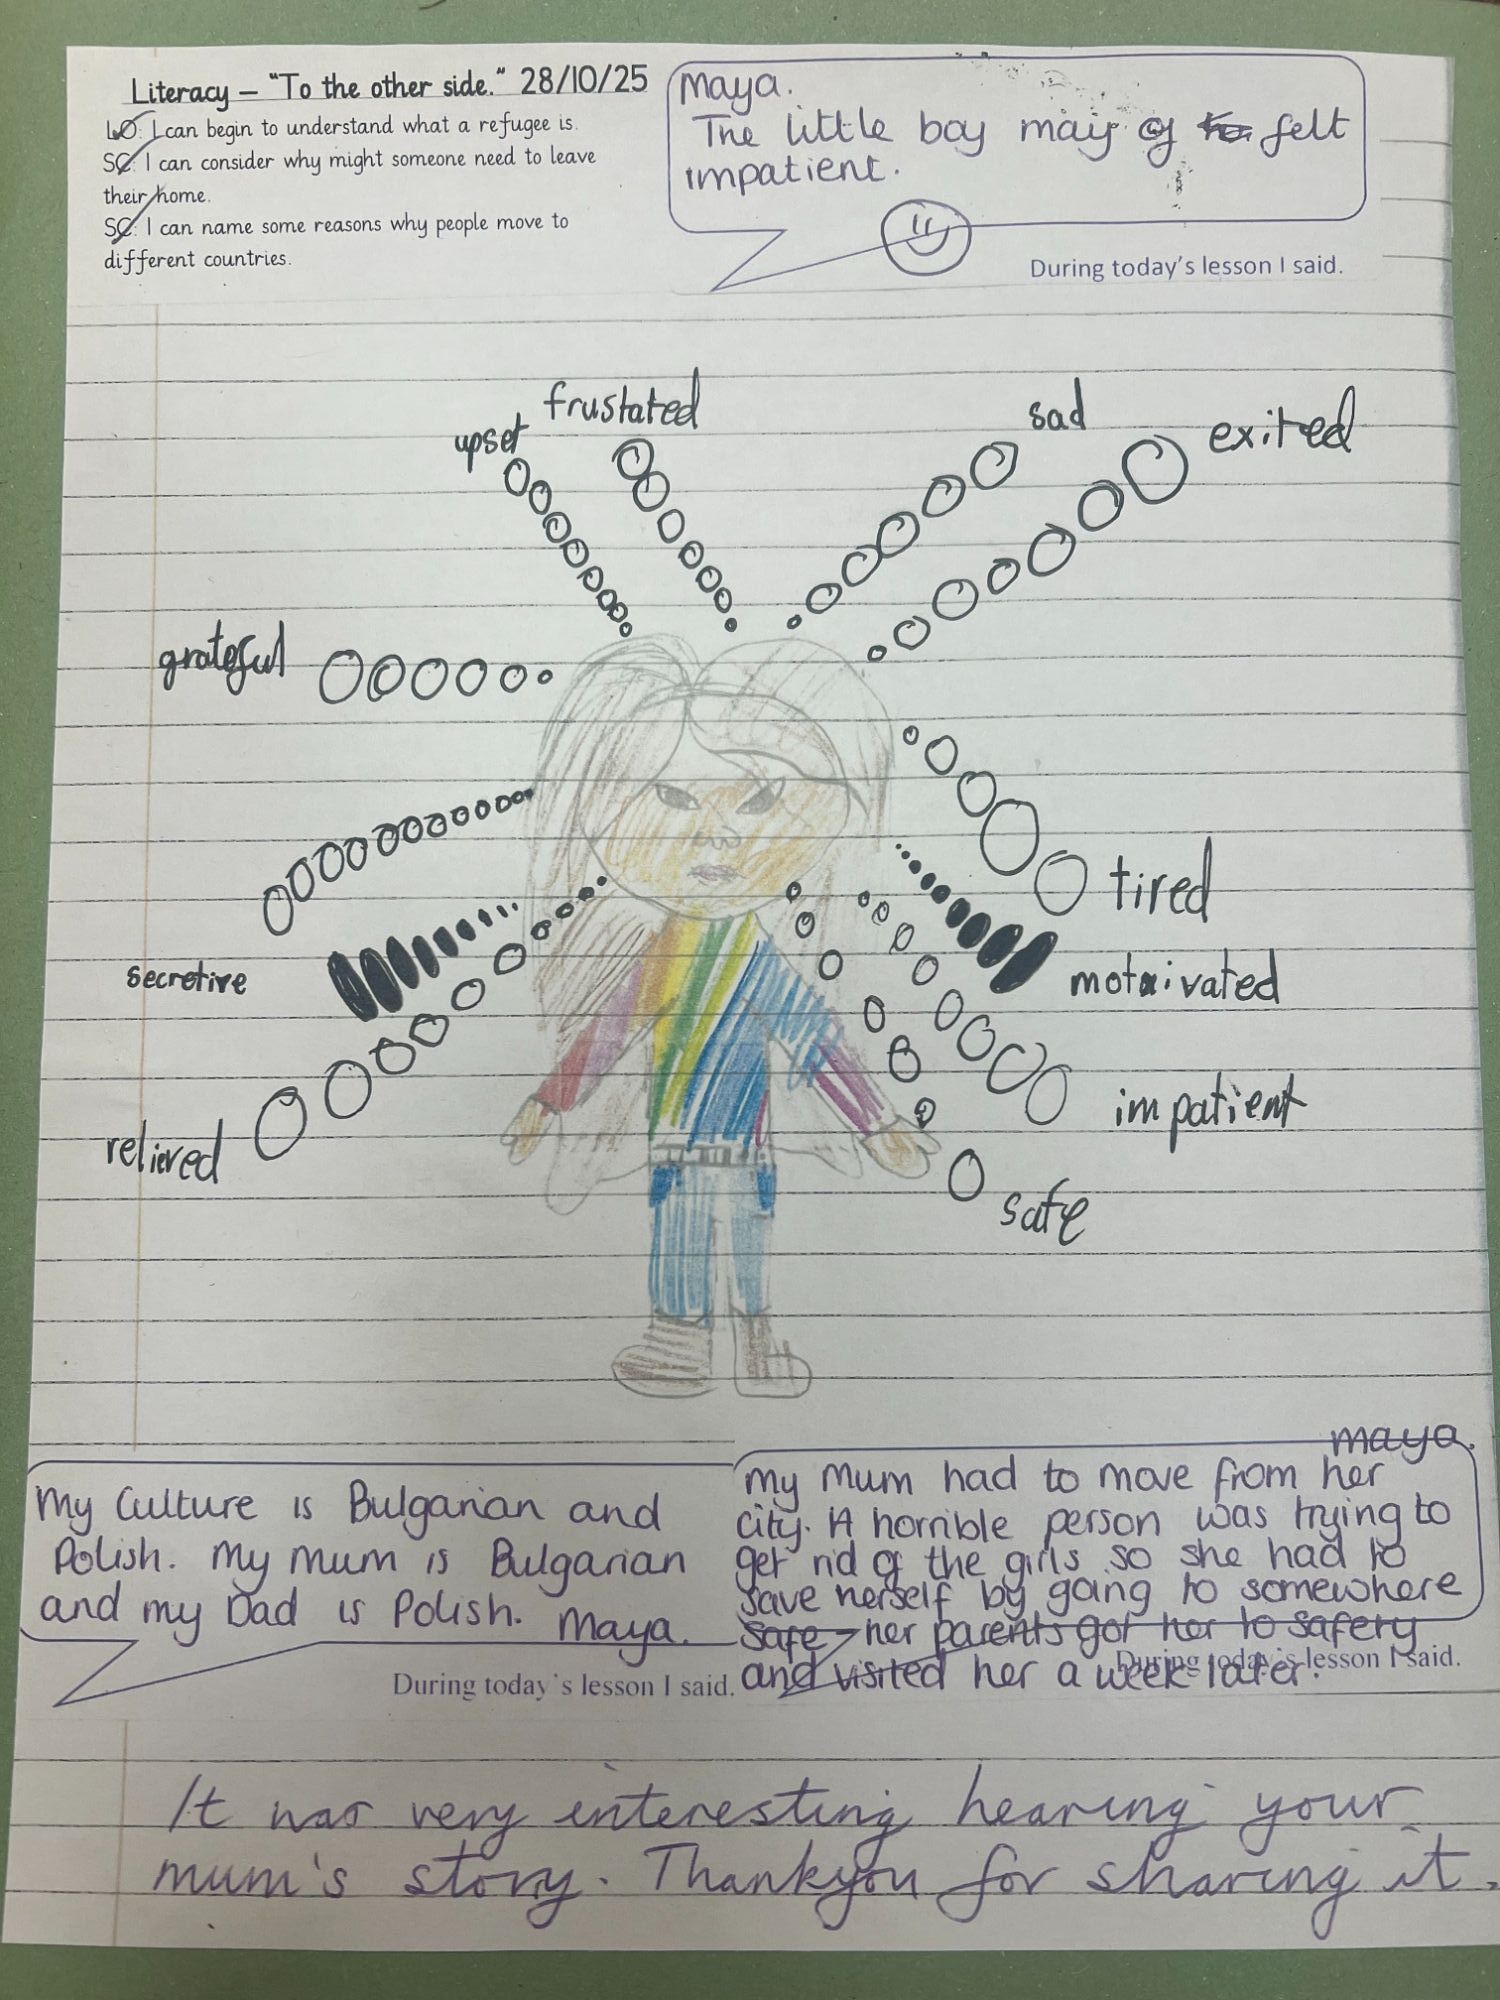 Literacy – "To the other side." 28/10/25
LO: I can begin to understand what a refugee is.
SC: I can consider why might someone need to leave
their home.
SC: I can name some reasons why people move to
different countries.
Maya.
The little boy may of felt
impatient.
During today's lesson I said.
upset
frustated
sad
exited
grateful
tired
secretive
motaivated
relieved
impatient
safe
My Culture is Bulgarian and
Polish. My mum is Bulgarian
and my Dad is Polish. Maya.
During today's lesson I said.
maya.
My Mum had to move from her
city. A horrible person was trying to
get rid of the girls so she had to
save herself by going to somewhere
safe - her parents got her to safety
and visited her a week later.
During today's lesson I said.
It was very interesting hearing your
mum's story. Thankyou for sharing it.